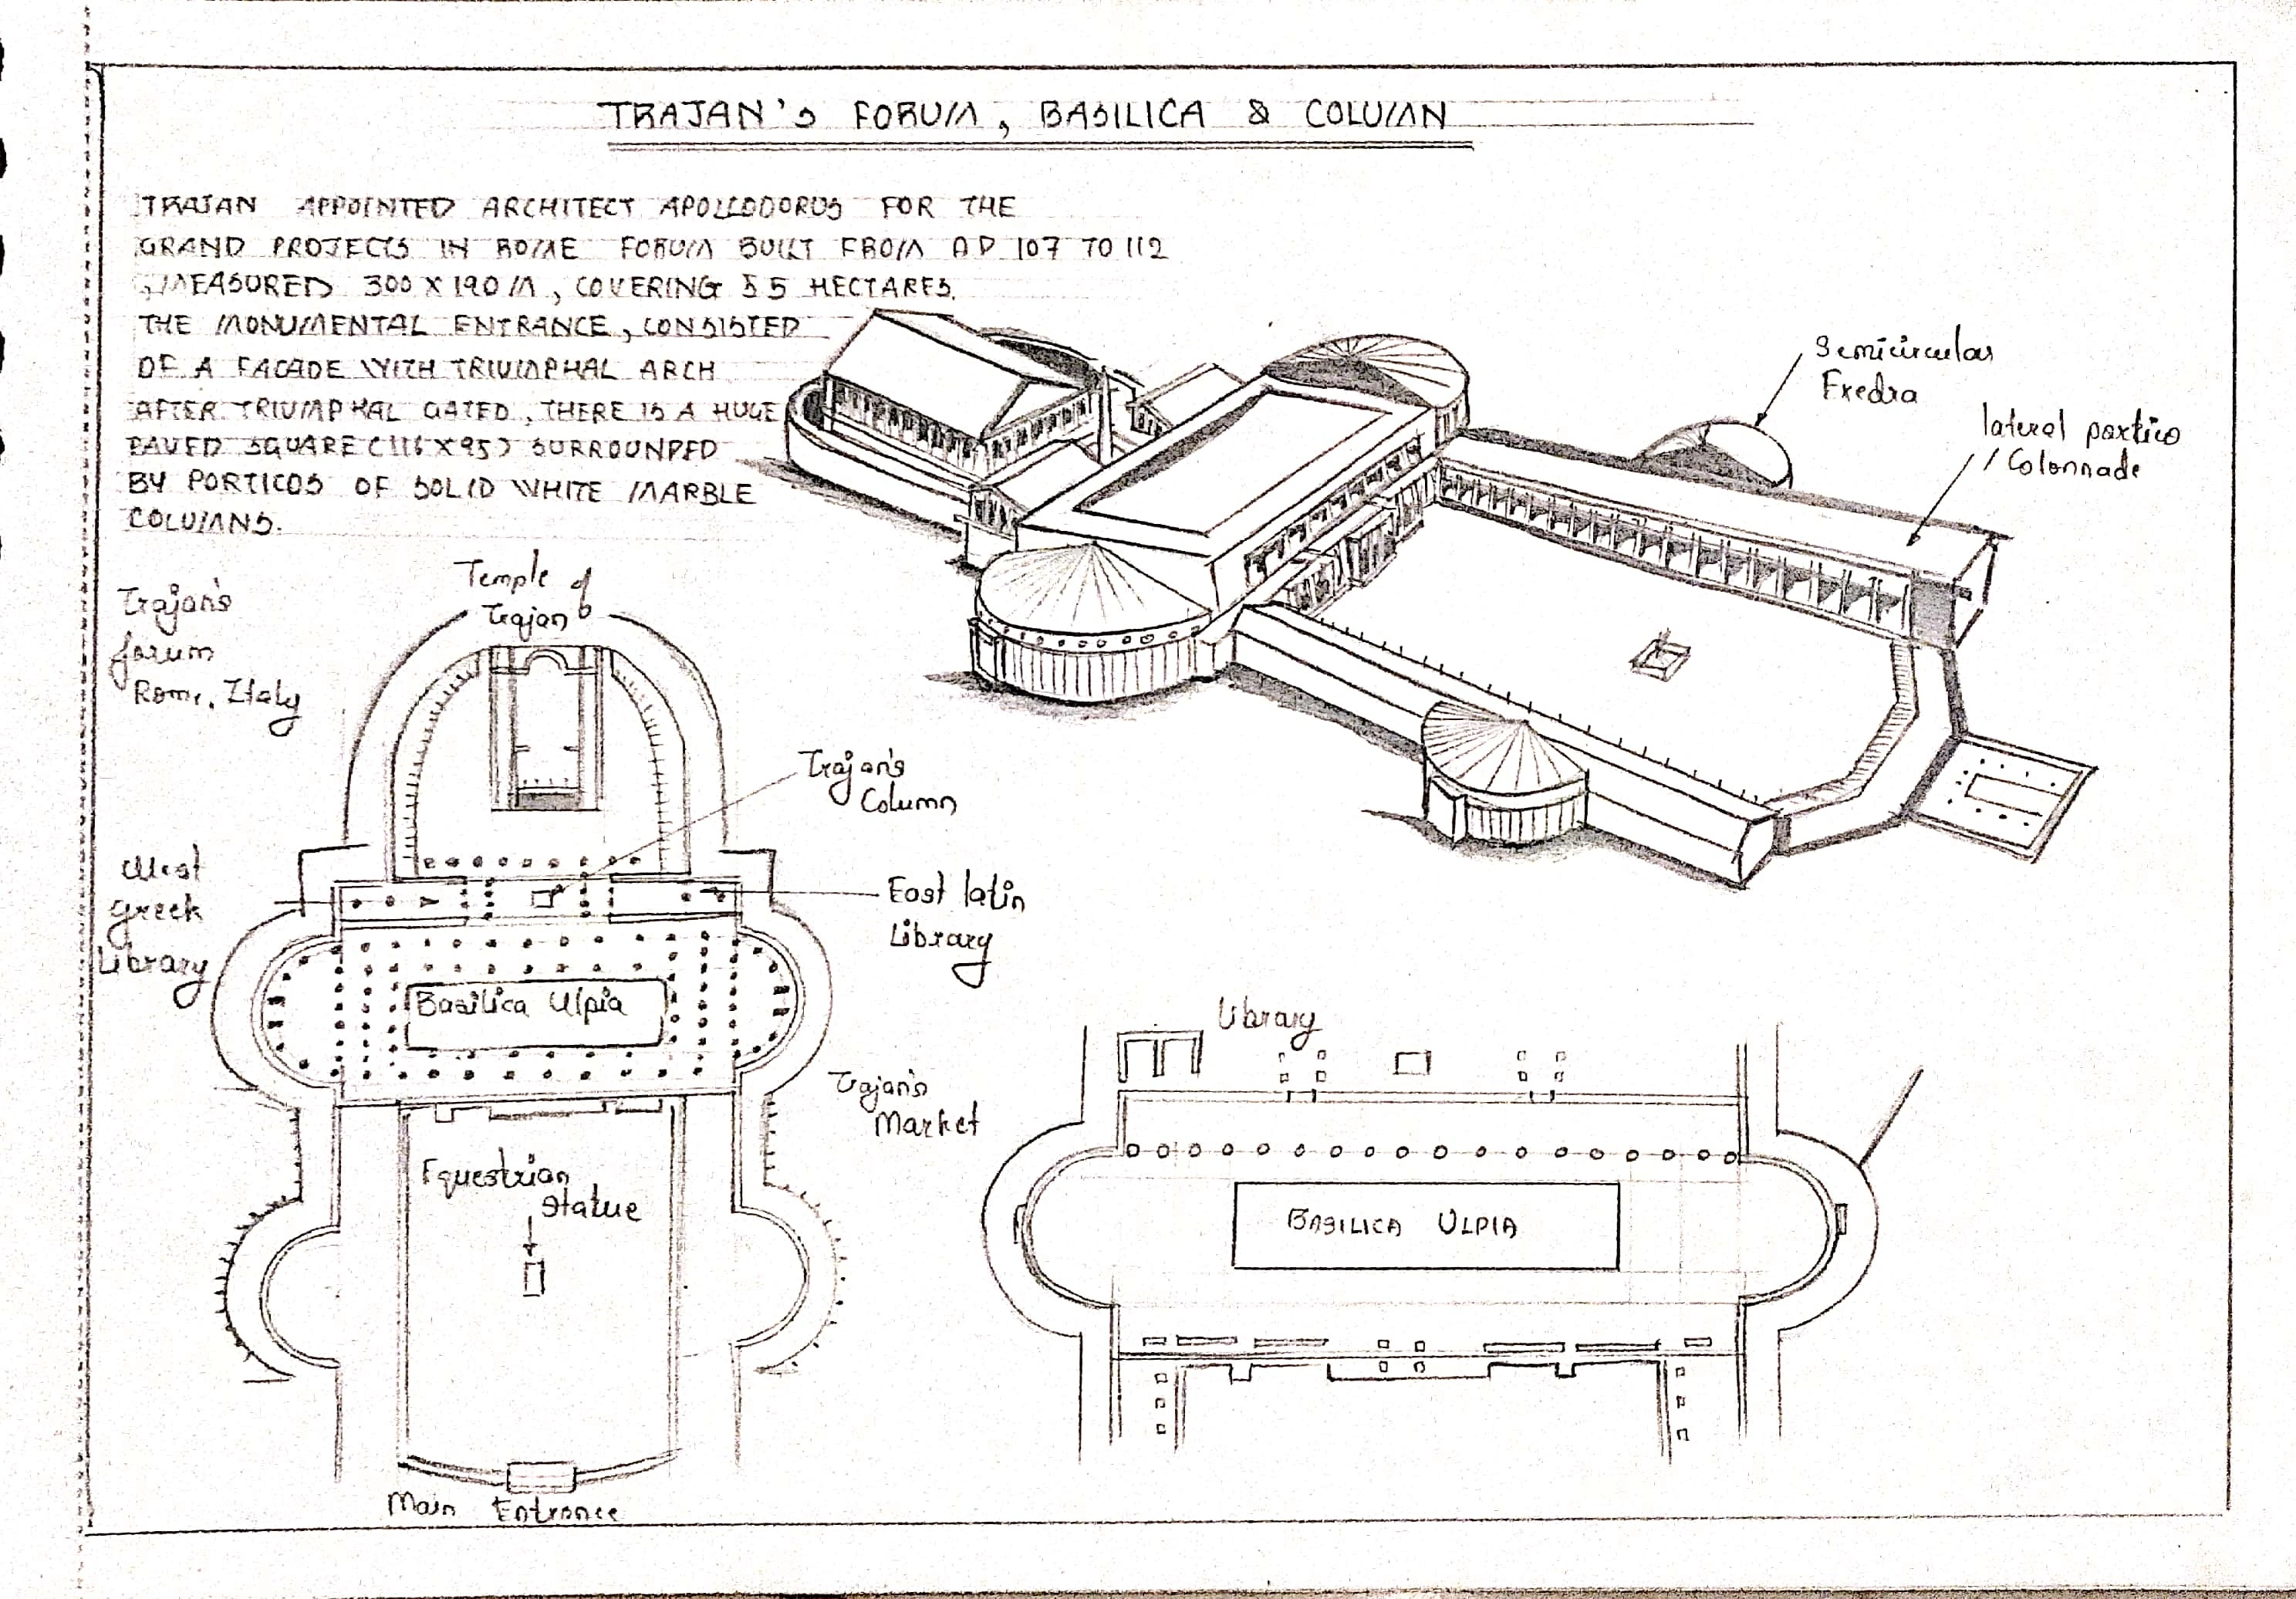 TRAJAN'S FORUM, BASILICA & COLUMN
TRAJAN APPOINTED ARCHITECT APOLLODORUS FOR THE
GRAND PROJECTS IN ROME FORUM BUILT FROM AD 107 TO 112
MEASURED 300 X 190 M, COVERING 5 5 HECTARES.
THE MONUMENTAL ENTRANCE, CONSISTED
OF A FACADE WITH TRIUMPHAL ARCH
AFTER TRIUMPHAL GATED, THERE IS A HUGE
PAVED SQUARE (116 X 95) SURROUNDED
BY PORTICOS OF SOLID WHITE MARBLE
COLUMNS.
Semicircular
Exedra
lateral portico
/ Colonnade
Trajan's
forum
Rome, Italy
Temple of
Trajan
Trajan's
Column
West
greek
Library
East latin
Library
Basilica Ulpia
Trajan's
Market
Equestrian
Statue
Main Entrance
Library
BASILICA ULPIA